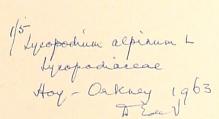 1/5
Lycopodium alpinum L
Lycopodiaceae
Hoy - Orkney 1963